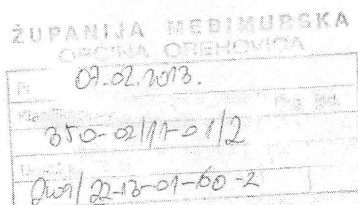 ŽUPANIJA MEĐIMURSKA
OPĆINA OREHOVICA
07.02.2013.
Org. jed.
350-02/11-01/2
22-13-01-00-2